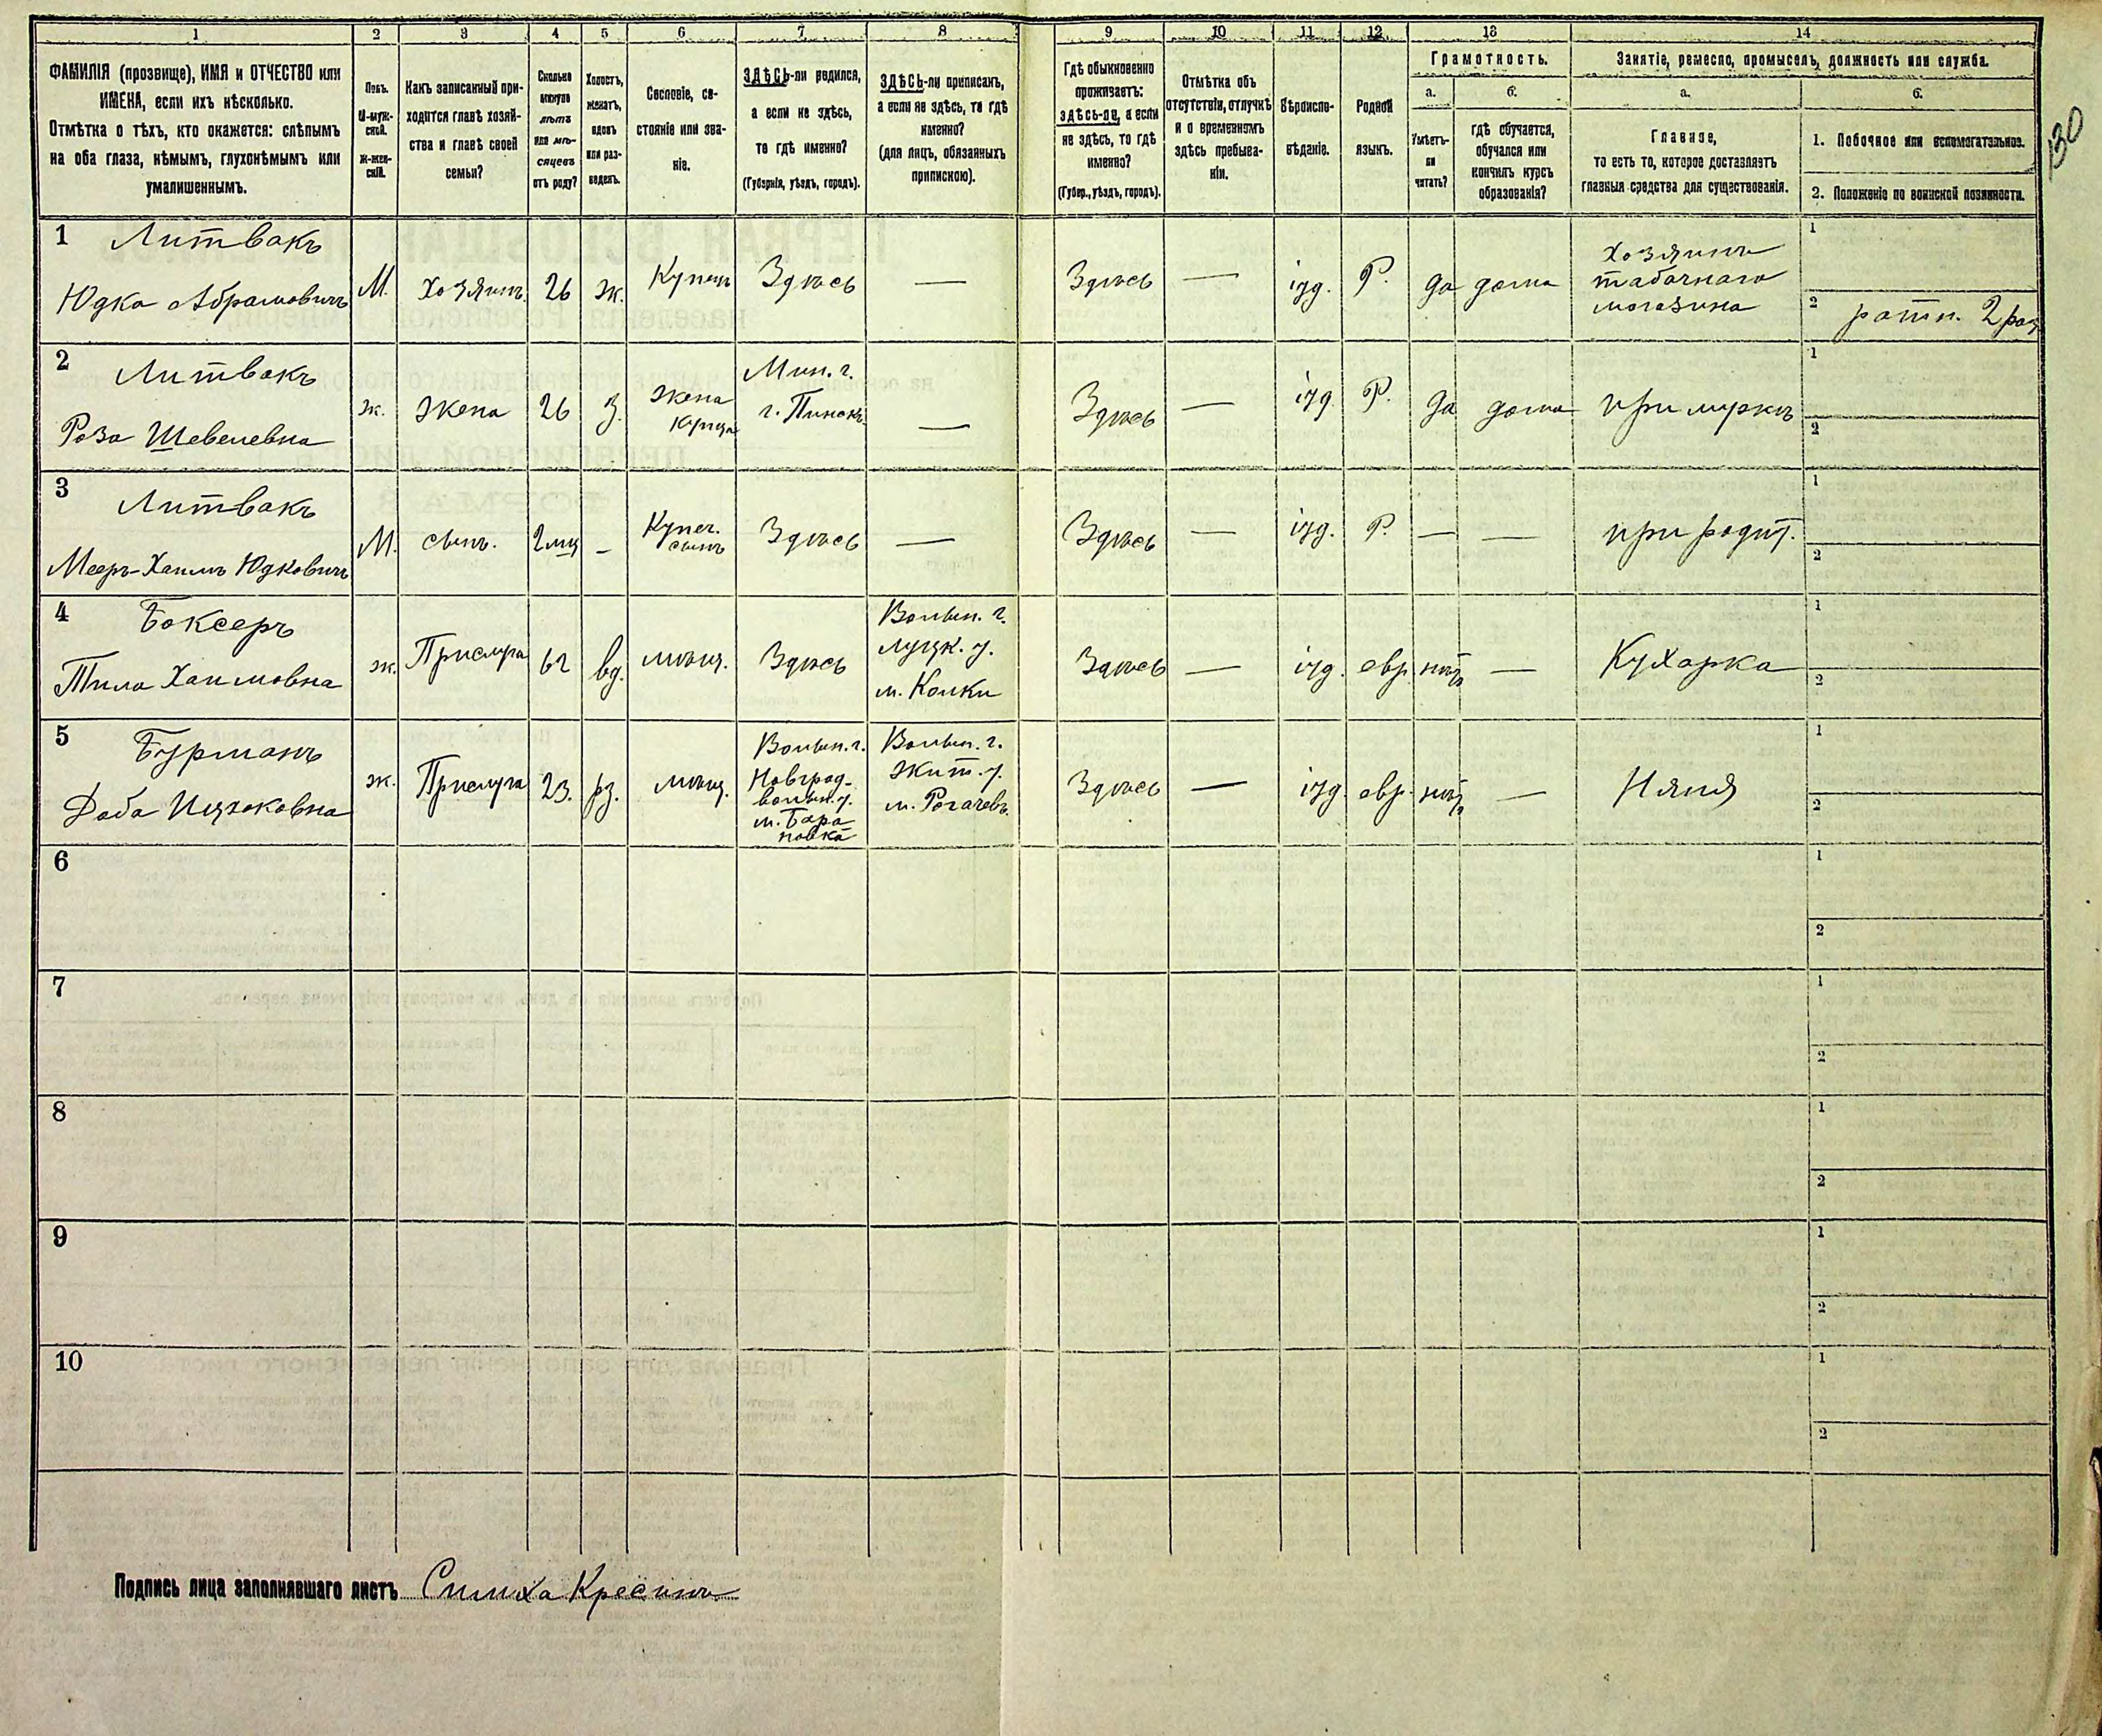 1 2 3 4 5 6 7 8 9 10 11 12 13 14
ФАМИЛІЯ (прозвище), ИМЯ и ОТЧЕСТВО или
ИМЕНА, если ихъ нѣсколько.
Отмѣтка о тѣхъ, кто окажется: слѣпымъ
на оба глаза, нѣмымъ, глухонѣмымъ или
умалишеннымъ.
Полъ.
М-муж-
ской.
Ж-жен-
скій.
Какъ записанный при-
ходится главѣ хозяй-
ства и главѣ своей
семьи?
Сколько
минуло
лѣтъ
или мѣ-
сяцевъ
отъ роду?
Холостъ,
женатъ,
вдовъ
или раз-
веденъ.
Сословіе, со-
стояніе или зва-
ніе.
ЗДѢСЬ-ли родился,
а если не здѣсь,
то гдѣ именно?
(Губернія, уѣздъ, городъ).
ЗДѢСЬ-ли приписанъ,
а если не здѣсь, то гдѣ
именно?
(для лицъ, обязанныхъ
припискою).
Гдѣ обыкновенно
проживаетъ:
здѣсь-ли, а если
не здѣсь, то гдѣ
именно?
(Губер., уѣздъ, городъ).
Отмѣтка объ
отсутствіи, отлучкѣ
и о временномъ
здѣсь пребыва-
ніи.
Вѣроиспо-
вѣданіе.
Родной
языкъ.
Грамотность.
а. б.
Умѣетъ-
ли
читать?
гдѣ обучается,
обучался или
кончилъ курсъ
образованія?
Занятіе, ремесло, промыселъ, должность или служба.
а. б.
Главное,
то есть то, которое доставляетъ
главныя средства для существованія.
1. Побочное или вспомогательное.
2. Положеніе по воинской повинности.
130
1 Литвакъ
Юдко Абрамовичъ
М. Хозяинъ 26 ж. Купец Здѣсь — Здѣсь — іуд. Р. да дома
Хозяинъ
табачнаго
магазина
1
2 ратн. 2 раз
2 Литвакъ
Роза Шевелевна
ж. жена 26 З.
жена
купца
Мин. г.
г. Пинскъ
— Здѣсь — іуд. Р. да дома при мужѣ
1
2
3 Литвакъ
Мееръ-Хаимъ Юдковичъ
М. сынъ. 2 мц —
Купеч.
сынъ
Здѣсь — Здѣсь — іуд. Р. — — при родит.
1
2
4 Боксеръ
Тила Хаимовна
ж. Прислуга 62 вд. мѣщ. Здѣсь
Волын. г.
Луцк. у.
м. Колки
Здѣсь — іуд. евр нѣтъ — Кухарка
1
2
5 Бурманъ
Доба Ицхоковна
ж. Прислуга 23. рз. мѣщ.
Волын. г.
Новград-
волын. у.
м. Бара
новка
Волын. г.
жит. у.
м. Рогачевъ
Здѣсь — іуд. евр. нѣтъ — Няня
1
2
6
1
2
7
1
2
8
1
2
9
1
2
10
1
2
Подпись лица заполнявшаго листъ Симха Кресинъ